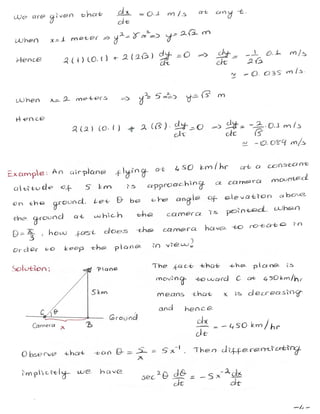 We are given that dx/dt = 0.1 m/s at any t.
When x=1 meter ⇒ y²=8 m² ⇒ y=2√2 m
Hence 2(1)(0.1) + 2(2√2) dy/dt = 0 → dy/dt = -1/(2√2) 0.1 m/s
≃ -0.035 m/s.
When x=2 meters ⇒ y²=5 m² ⇒ y=√5 m
Hence
2(2)(0.1) + 2(√5). dy/dt = 0 → dy/dt = -2/√5 . 0.1 m/s
≃ -0.089 m/s
Example: An airplane flying at 450 km/hr at a constant
altitude of 5 km is approaching a camera mounted
on the ground. Let θ be the angle of elevation above
the ground at which the camera is pointed. When
θ=π/3, how fast does the camera have to rotate in
order to keep the plane in view?
Solution:
Plane
5km
C θ
Ground
Camera x B
The fact that the plane is
moving toward C at 450km/hr
means that x is decreasing
and hence
dx/dt = -450 km/hr
Observe that tan θ = 5/x = 5x⁻¹. Then differentiating
implicitely we have sec²θ dθ/dt = -5x⁻² dx/dt